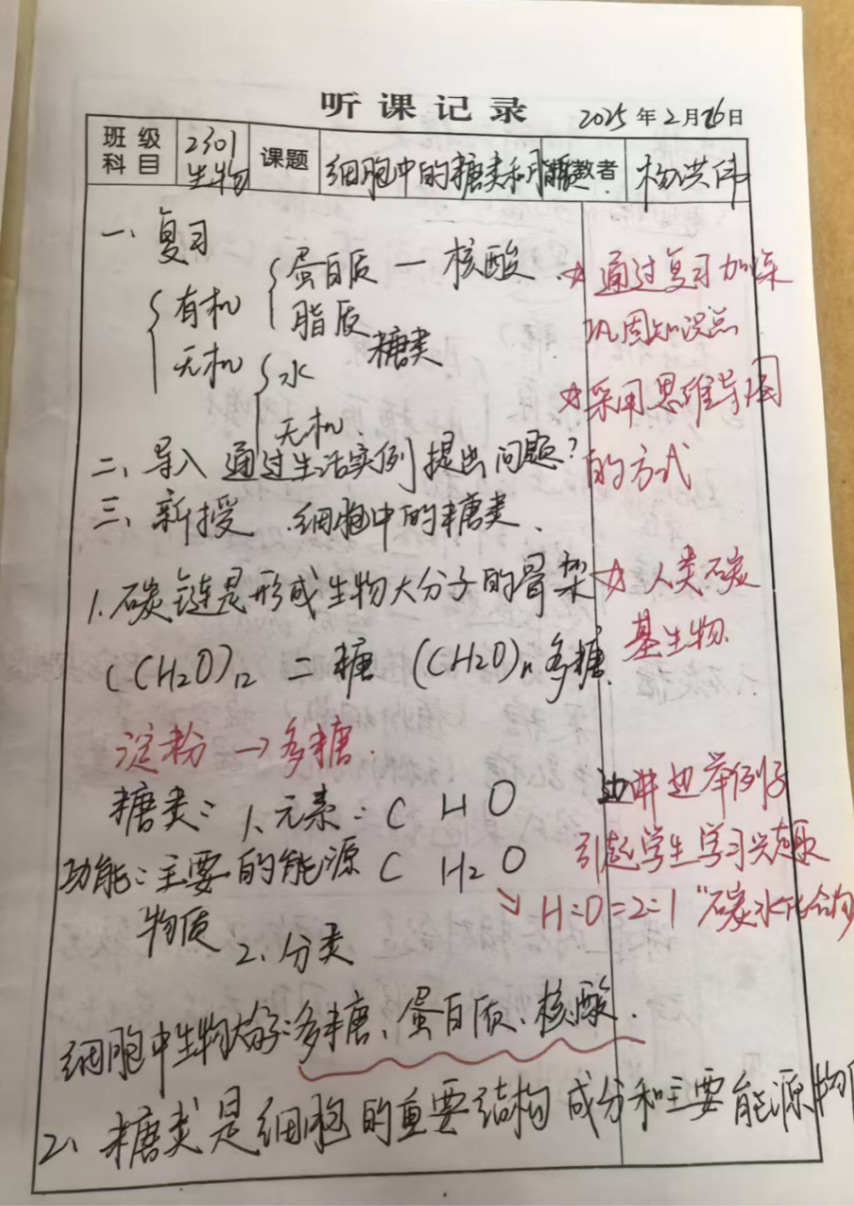 听课记录
2025年2月26日
班级科目 2301生物 课题 细胞中的糖类和脂质 授教者 杨洪伟
一、复习
有机 { 蛋白质 — 核酸
脂质 糖类
无机 { 水
无机
☆ 通过复习加深
巩固知识点
☆ 采用思维导图
的方式
二、导入 通过生活实例提出问题?
三、新授 细胞中的糖类.
1.碳链是形成生物大分子的骨架
☆ 人类碳
基生物.
(CH₂O)₁₂ 二糖 (CH₂O)n 多糖.
淀粉 → 多糖.
糖类: 1、元素: C H O
边讲边举例子
引起学生学习兴趣
功能:主要的能源 C H₂ O
物质
H:O=2:1 “碳水化合物
2、分类
细胞中生物大分子:多糖、蛋白质、核酸.
2、糖类是细胞的重要结构成分和主要能源物质